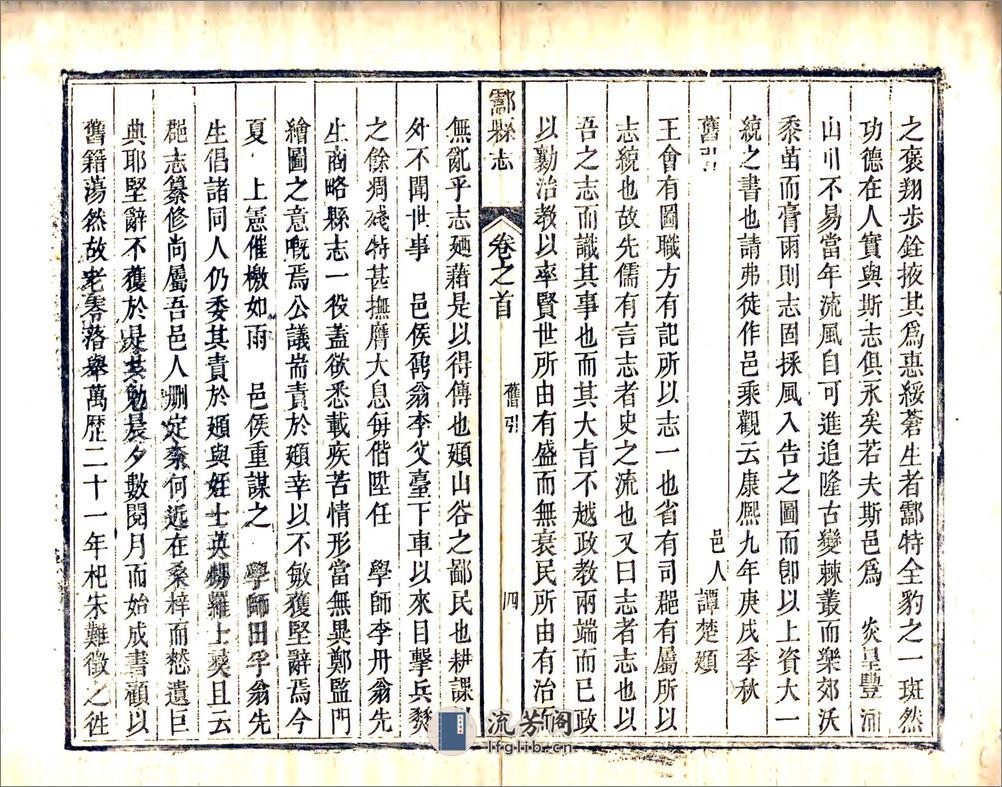 之褒翔步銓掖其爲惠綏蒼生者酃特全豹之一斑然
功德在人實與斯志俱永矣若夫斯邑爲　炎皇豐沛
山川不易當年流風自可進追隆古變棘叢而樂郊沃
黍苗而膏雨則志固採風入告之圖而卽以上資大一
統之書也請弗徒作邑乘觀云康熙九年庚戌季秋
舊引
邑人譚楚䫉
王會有圖職方有記所以志一也省有司郡有屬所以
志統也故先儒有言志者史之流也又曰志者志也以
吾之志而識其事也而其大旨不越政教兩端而已政
以勷治教以率賢世所由有盛而無衰民所由有治而
酃縣志
卷之首
舊引
四
無亂乎志廼藉是以得傳也䫉山谷之鄙民也耕課
外不聞世事　邑侯　翁李父臺下車以來目擊兵燹
之餘凋殘特甚撫膺大息每偕陞任　學師李丹翁先
生商略縣志一役蓋欲悉載疾苦情形當無異鄭監門
繪圖之意嘅焉公議耑責於䫉幸以不敏獲堅辭焉今
夏　上憲催檄如雨　邑侯重謀之　學師田孚翁先
生倡諸同人仍委其責於䫉與姪士英甥羅上　且云
郡志纂修尚屬吾邑人刪定柰何近在桑梓而憖遺巨
典耶堅辭不獲於是共勉晨夕數閱月而始成書顧以
舊籍蕩然故老零落舉萬歷二十一年杞宋難徵之徃
流芳阁
lfglib.cn